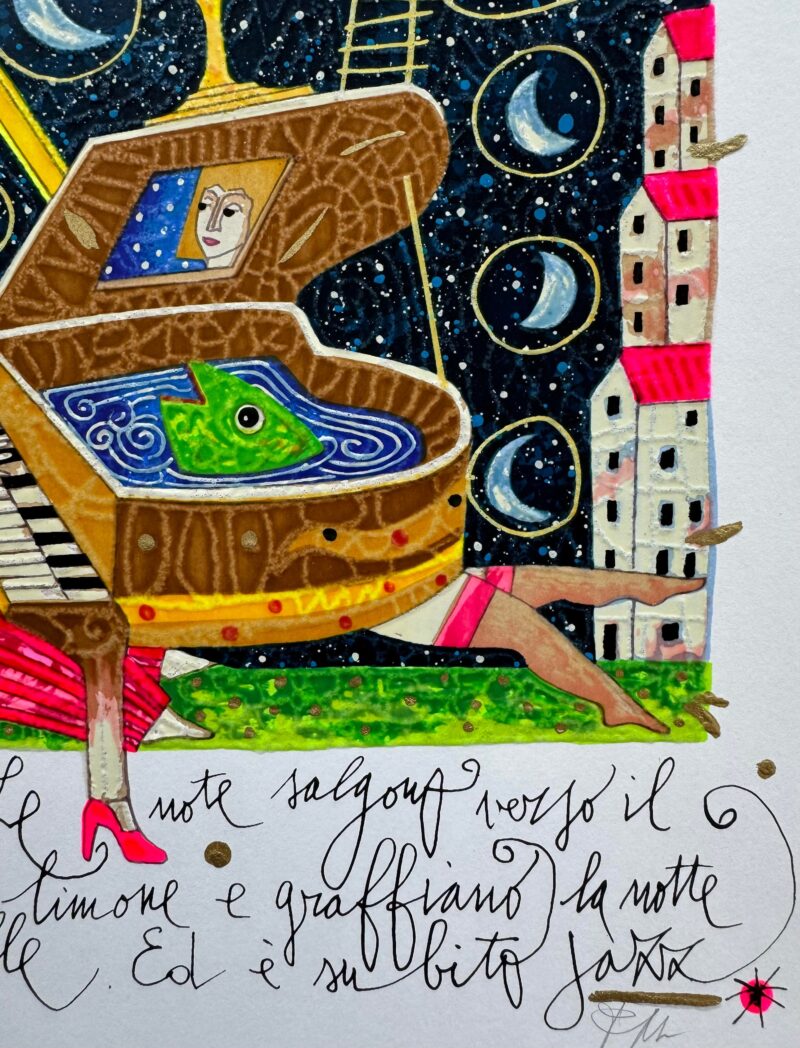 Le note salgono verso il
limone e graffiano la notte
lle. Ed è subito jazz